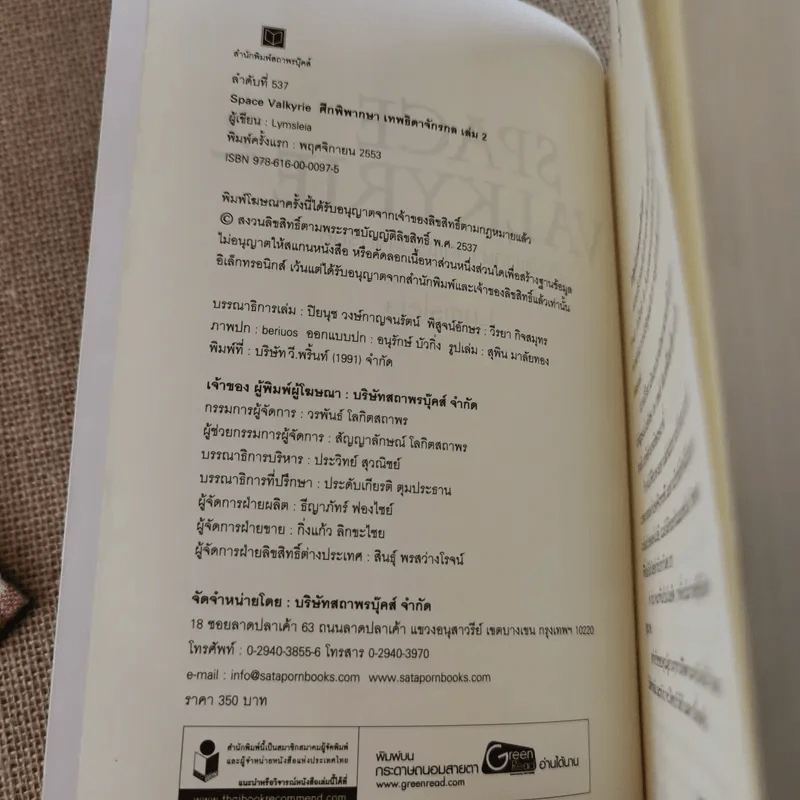 สำนักพิมพ์สถาพรบุ๊คส์
ลำดับที่ 537
Space Valkyrie ศึกพิพากษา เทพธิดาจักรกล เล่ม 2
ผู้เขียน : Lymsleia
พิมพ์ครั้งแรก : พฤศจิกายน 2553
ISBN 978-616-00-0097-5
พิมพ์โฆษณาครั้งนี้ได้รับอนุญาตจากเจ้าของลิขสิทธิ์ตามกฎหมายแล้ว
© สงวนลิขสิทธิ์ตามพระราชบัญญัติลิขสิทธิ์ พ.ศ. 2537
ไม่อนุญาตให้สแกนหนังสือ หรือคัดลอกเนื้อหาส่วนหนึ่งส่วนใดเพื่อสร้างฐานข้อมูล
อิเล็กทรอนิกส์ เว้นแต่ได้รับอนุญาตจากสำนักพิมพ์และเจ้าของลิขสิทธิ์แล้วเท่านั้น
บรรณาธิการเล่ม : ปิยนุช วงษ์กาญจนรัตน์ พิสูจน์อักษร : วีรยา กิจสมุทร
ภาพปก : beriuos ออกแบบปก : อนุรักษ์ บัวกิ่ง รูปเล่ม : สุพิน มาลัยทอง
พิมพ์ที่ : บริษัท วี.พริ้นท์ (1991) จำกัด
เจ้าของ ผู้พิมพ์ผู้โฆษณา : บริษัทสถาพรบุ๊คส์ จำกัด
กรรมการผู้จัดการ : วรพันธ์ โลกิตสถาพร
ผู้ช่วยกรรมการผู้จัดการ : สัญญาลักษณ์ โลกิตสถาพร
บรรณาธิการบริหาร : ประวิทย์ สุวณิชย์
บรรณาธิการที่ปรึกษา : ประดับเกียรติ ตุมประธาน
ผู้จัดการฝ่ายผลิต : ธีญาภัทร์ ฟองไชย์
ผู้จัดการฝ่ายขาย : กิ่งแก้ว ลิกขะไชย
ผู้จัดการฝ่ายลิขสิทธิ์ต่างประเทศ : สินธุ์ พรสว่างโรจน์
จัดจำหน่ายโดย : บริษัทสถาพรบุ๊คส์ จำกัด
18 ซอยลาดปลาเค้า 63 ถนนลาดปลาเค้า แขวงอนุสาวรีย์ เขตบางเขน กรุงเทพฯ 10220
โทรศัพท์ : 0-2940-3855-6 โทรสาร 0-2940-3970
e-mail : info@satapornbooks.com www.satapornbooks.com
ราคา 350 บาท
สำนักพิมพ์นี้เป็นสมาชิกสมาคมผู้จัดพิมพ์
และผู้จำหน่ายหนังสือแห่งประเทศไทย
แนะนำหรือวิจารณ์หนังสือเล่มนี้ได้ที่
www.thaibookrecommend.com
พิมพ์บน
กระดาษถนอมสายตา Green Read อ่านได้นาน
www.greenread.com